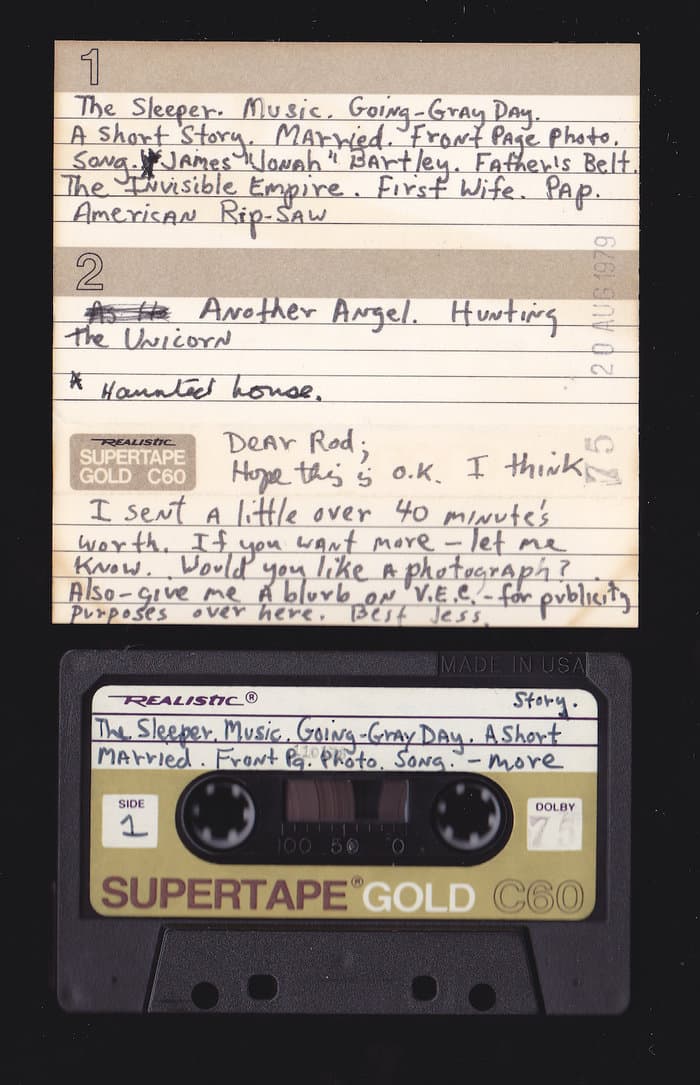 1
The Sleeper. Music. Going-Gray Day.
A Short Story. Married. Front Page Photo.
Song. James "Jonah" Bartley. Father's Belt.
The Invisible Empire. First Wife. Pap.
American Rip-Saw
2
Another Angel. Hunting
the Unicorn
20 AUG 1979
* Haunted house.
REALISTIC
SUPERTAPE
GOLD C60
Dear Rod;
Hope this is o.k. I think
75
I sent a little over 40 minute's
worth. If you want more - let me
know. Would you like a photograph?
Also - give me a blurb on V.E.C. - for publicity
purposes over here. Best Jess.
MADE IN USA
REALISTIC®
Story.
The Sleeper. Music. Going-Gray Day. A Short
Married. Front Pg. Photo. Song. - more
SIDE
1
DOLBY
75
100 50 0
SUPERTAPE® GOLD C60